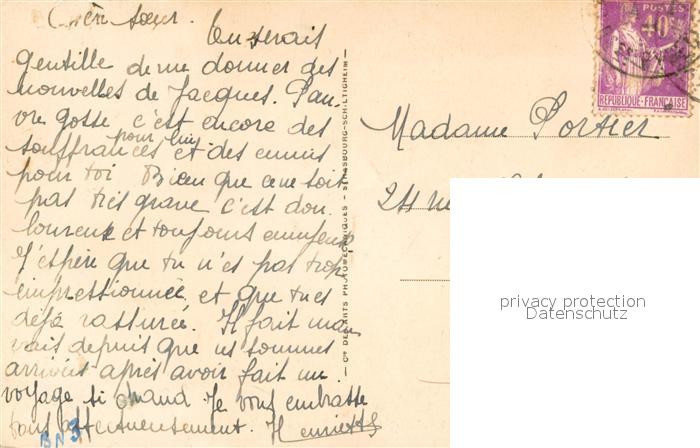 Chère sœur.
Tu serais
gentille de me donner des
nouvelles de Jacques. Pau-
vre gosse c'est encore des
souffrances pour lui et des ennuis
pour toi Bien que ce ne soit
pas très grave c'est dou-
loureux et toujours ennuyeux
J'espère que tu n'es pas trop
impressionnée et que tu es
déjà rassurée. Il fait mau-
vais depuis que ns sommes
arrivés après avoir fait un
voyage si chaud Je vous embrasse
tous affectueusement. Henriette
BN3
Cie DES ARTS PHOTOMECHANIQUES - STRASBOURG-SCHILTIGHEIM
POSTES
40c
REPUBLIQUE-FRANÇAISE
Madame Portier
24
privacy protection
Datenschutz